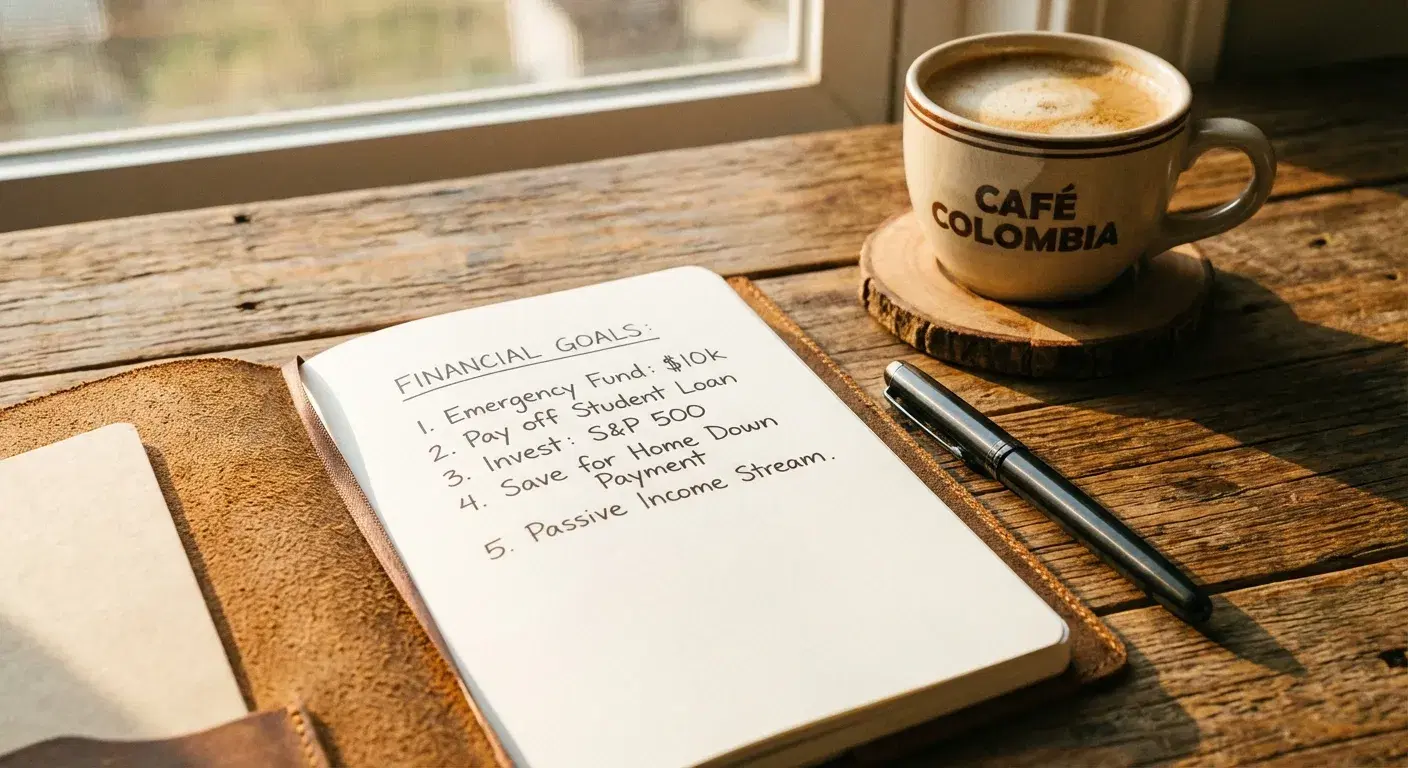 FINANCIAL GOALS:
1. Emergency Fund: $10k
2. Pay off Student Loan
3. Invest: S&P 500
4. Save for Home Down
Payment
5. Passive Income Stream.
CAFÉ
COLOMBIA